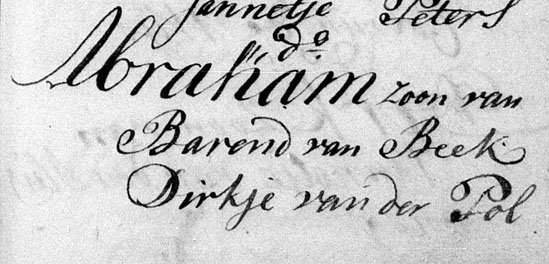 Jannetje Peters
" do
Abraham zoon van
Barend van Beek
Dirkje van der Pol